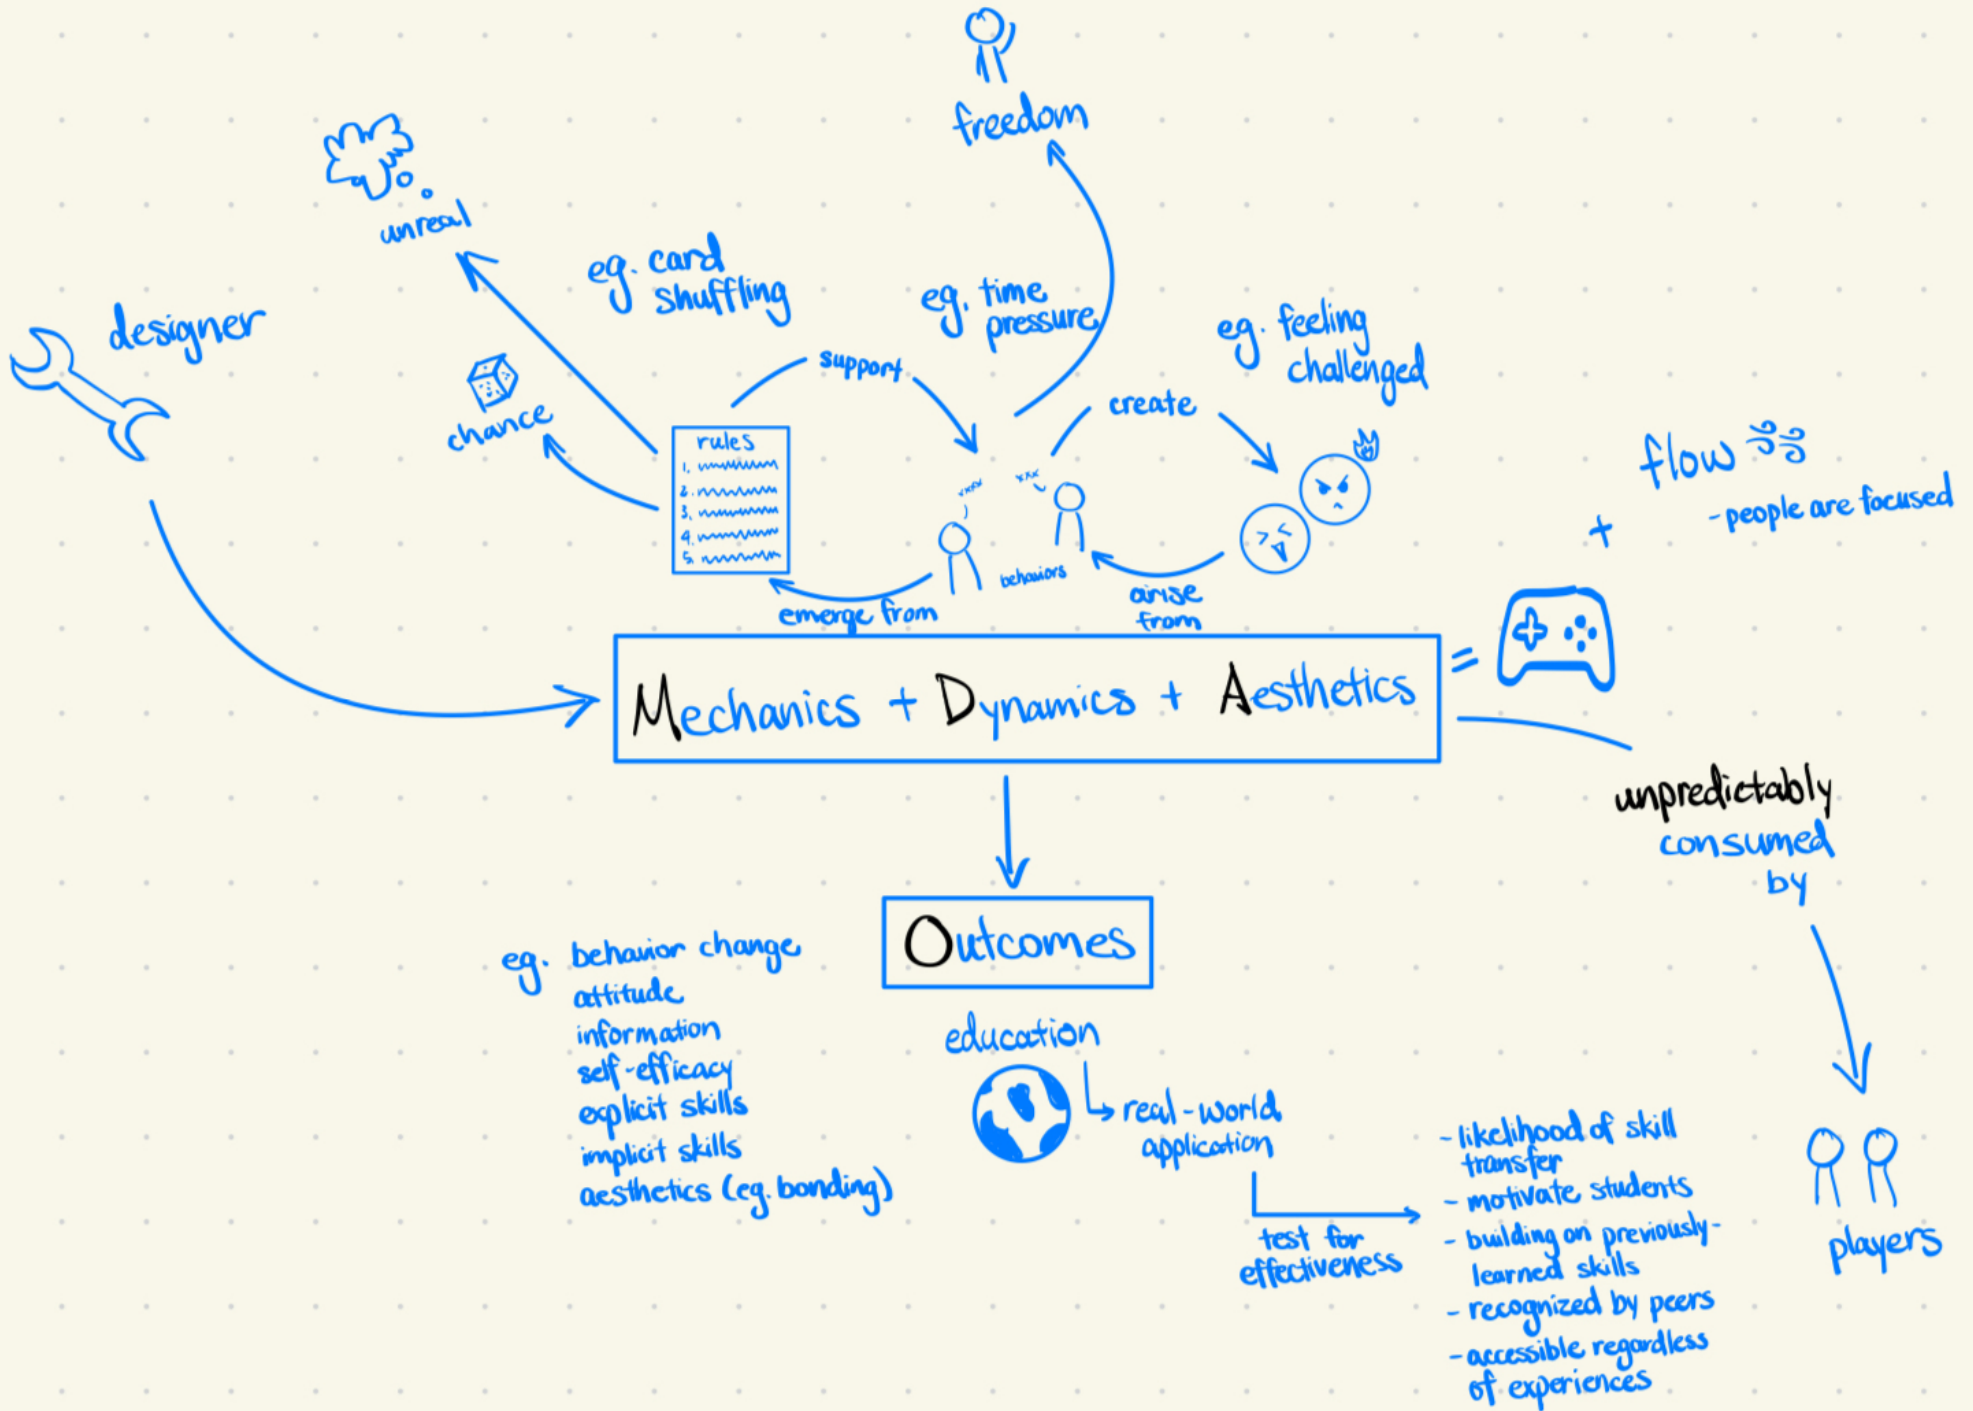 freedom
unreal
eg. card
shuffling
eg. time
pressure
eg. feeling
challenged
designer
support
create
chance
rules
1.
2.
3.
4.
5.
xxxx
xxx
behaviors
emerge from
arise
from
flow
- people are focused
+
Mechanics + Dynamics + Aesthetics
=
unpredictably
consumed
by
players
Outcomes
eg. behavior change
attitude
information
self-efficacy
explicit skills
implicit skills
aesthetics (eg. bonding)
education
real-world
application
test for
effectiveness
- likelihood of skill
transfer
- motivate students
- building on previously-
learned skills
- recognized by peers
- accessible regardless
of experiences